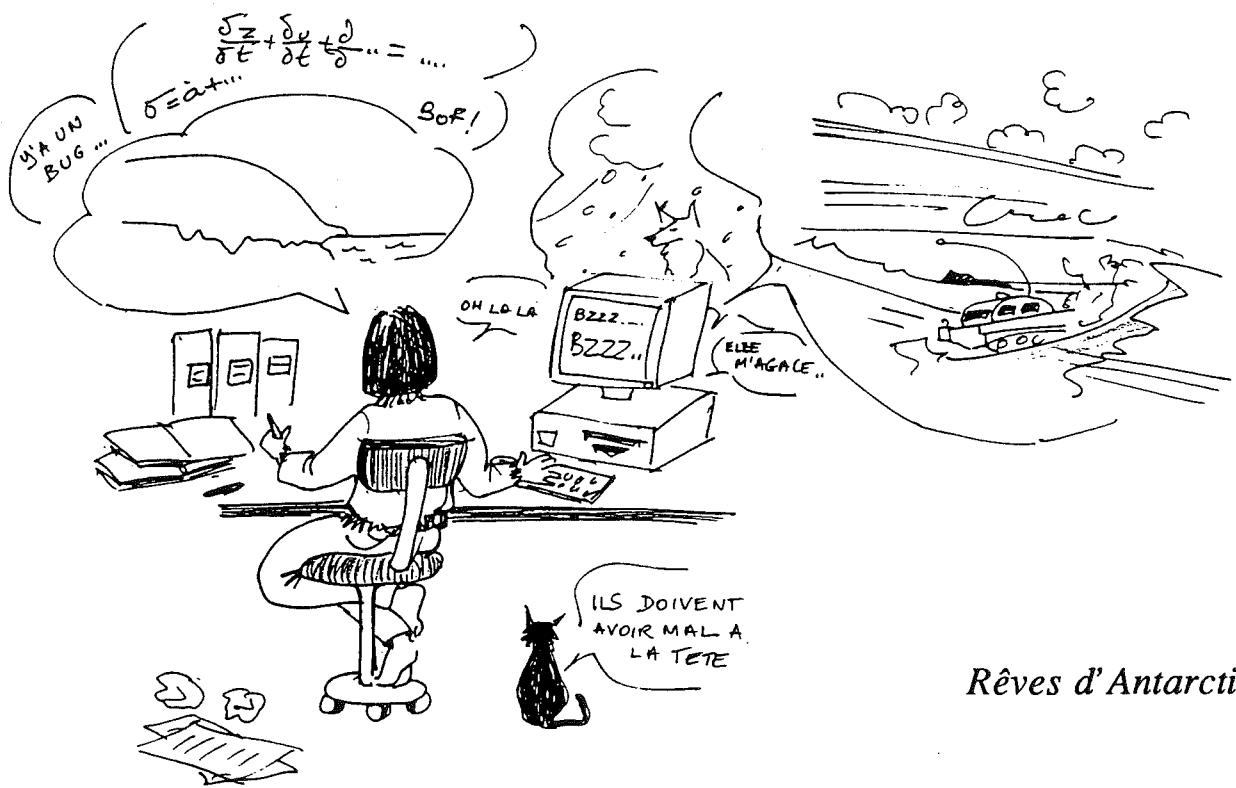 δz/δt + δu/δt + ∂/∂ .. = ....
σ = ȧ + ...
Y'A UN
BUG ...
BOF!
OH LA LA
BZZZ....
BZZZ..
ELLE
M'AGACE..
ILS DOIVENT
AVOIR MAL A
LA TETE
Rêves d'Antarcti